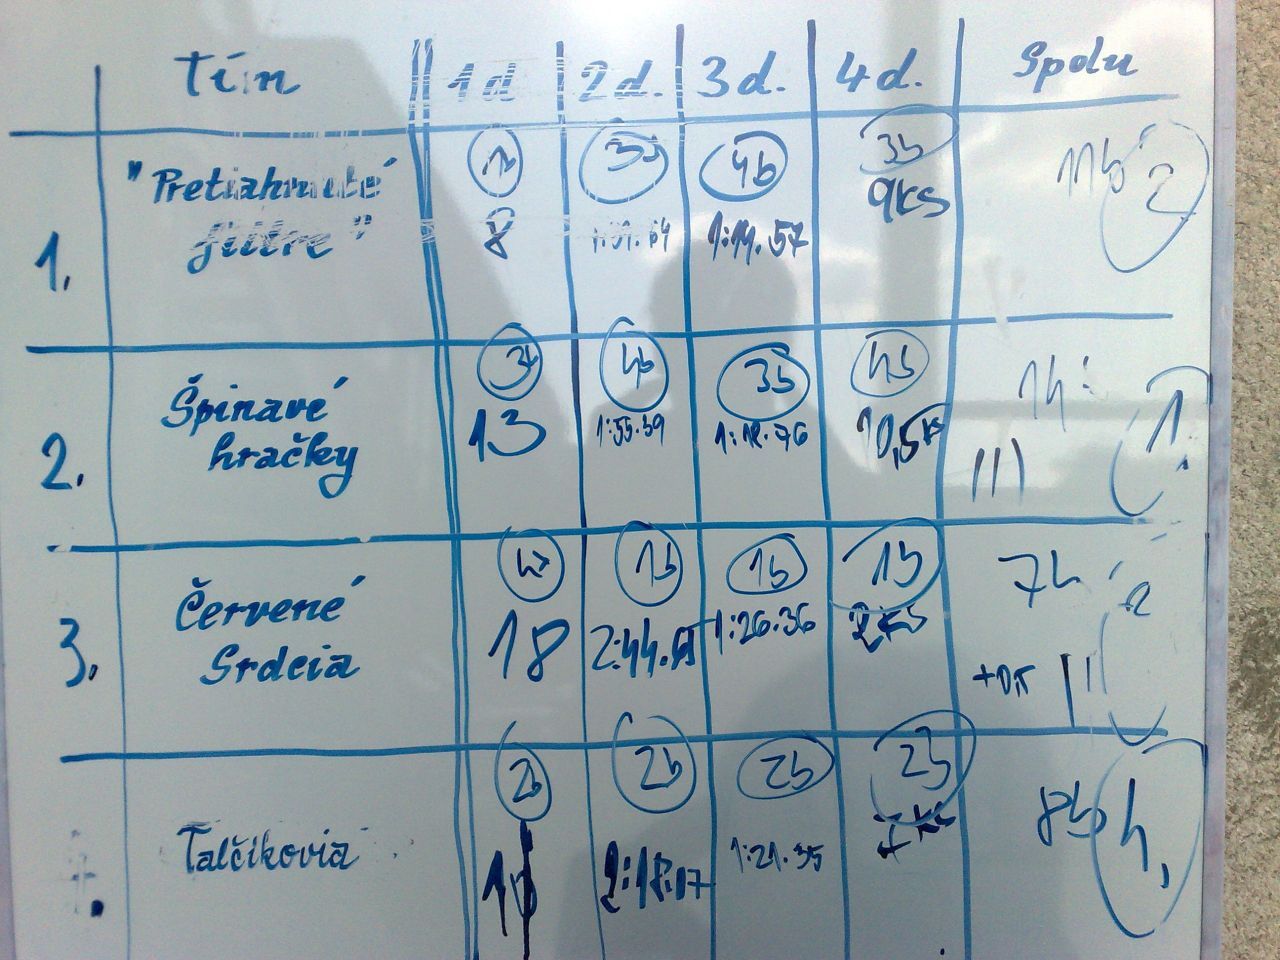 Tím 1d 2d. 3d. 4d. Spolu
1. "Pretiahnuté filtre"
1b 3b 4b 3b 11b 2
8 1:14.57 9ks
2. Špinavé hračky
3b 4b 3b 4b 14 1.
13 1:55.39 1:18.76 10,5ks
3. Červené Srdcia
1b 1b 1b 7b
18 2:44. 1:26:36 2ks
+0,5
Talčíkovia
2b 2b 2b 2b 8b 4.
2:18:07 1:21.35